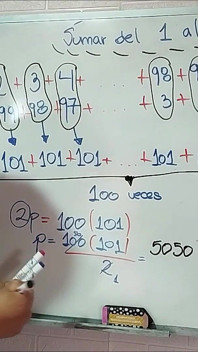 Sumar del 1 al
2 + 3 + 4 + . . . + 98 +
99 98 97 . . . + 3 +
101 + 101 + 101 + . . . + 101 +
100 veces
2p = 100 (101)
p = 100 (101) = 5050
2